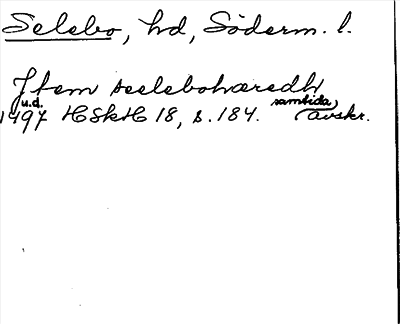 Selebo, hd, Söderm. l.
Jtem seelebohæredh
u.d. samtida,
1497 HSkH 18, s. 184. avskr.